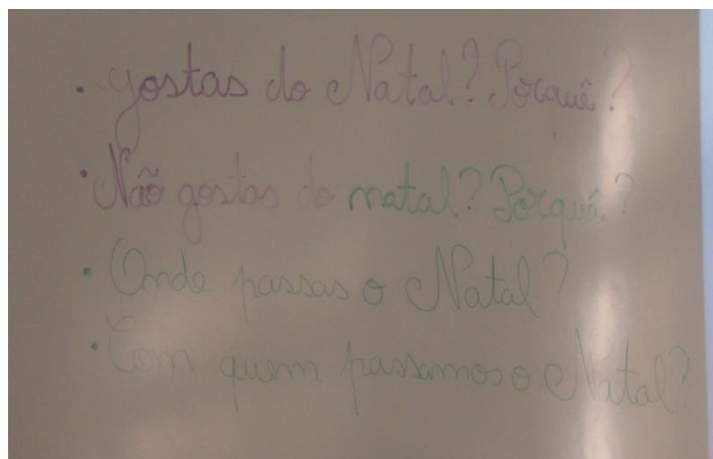 . gostas do Natal? Porquê?
. Não gostas do natal? Porquê?
. Onde passas o Natal?
. Com quem passamos o Natal?